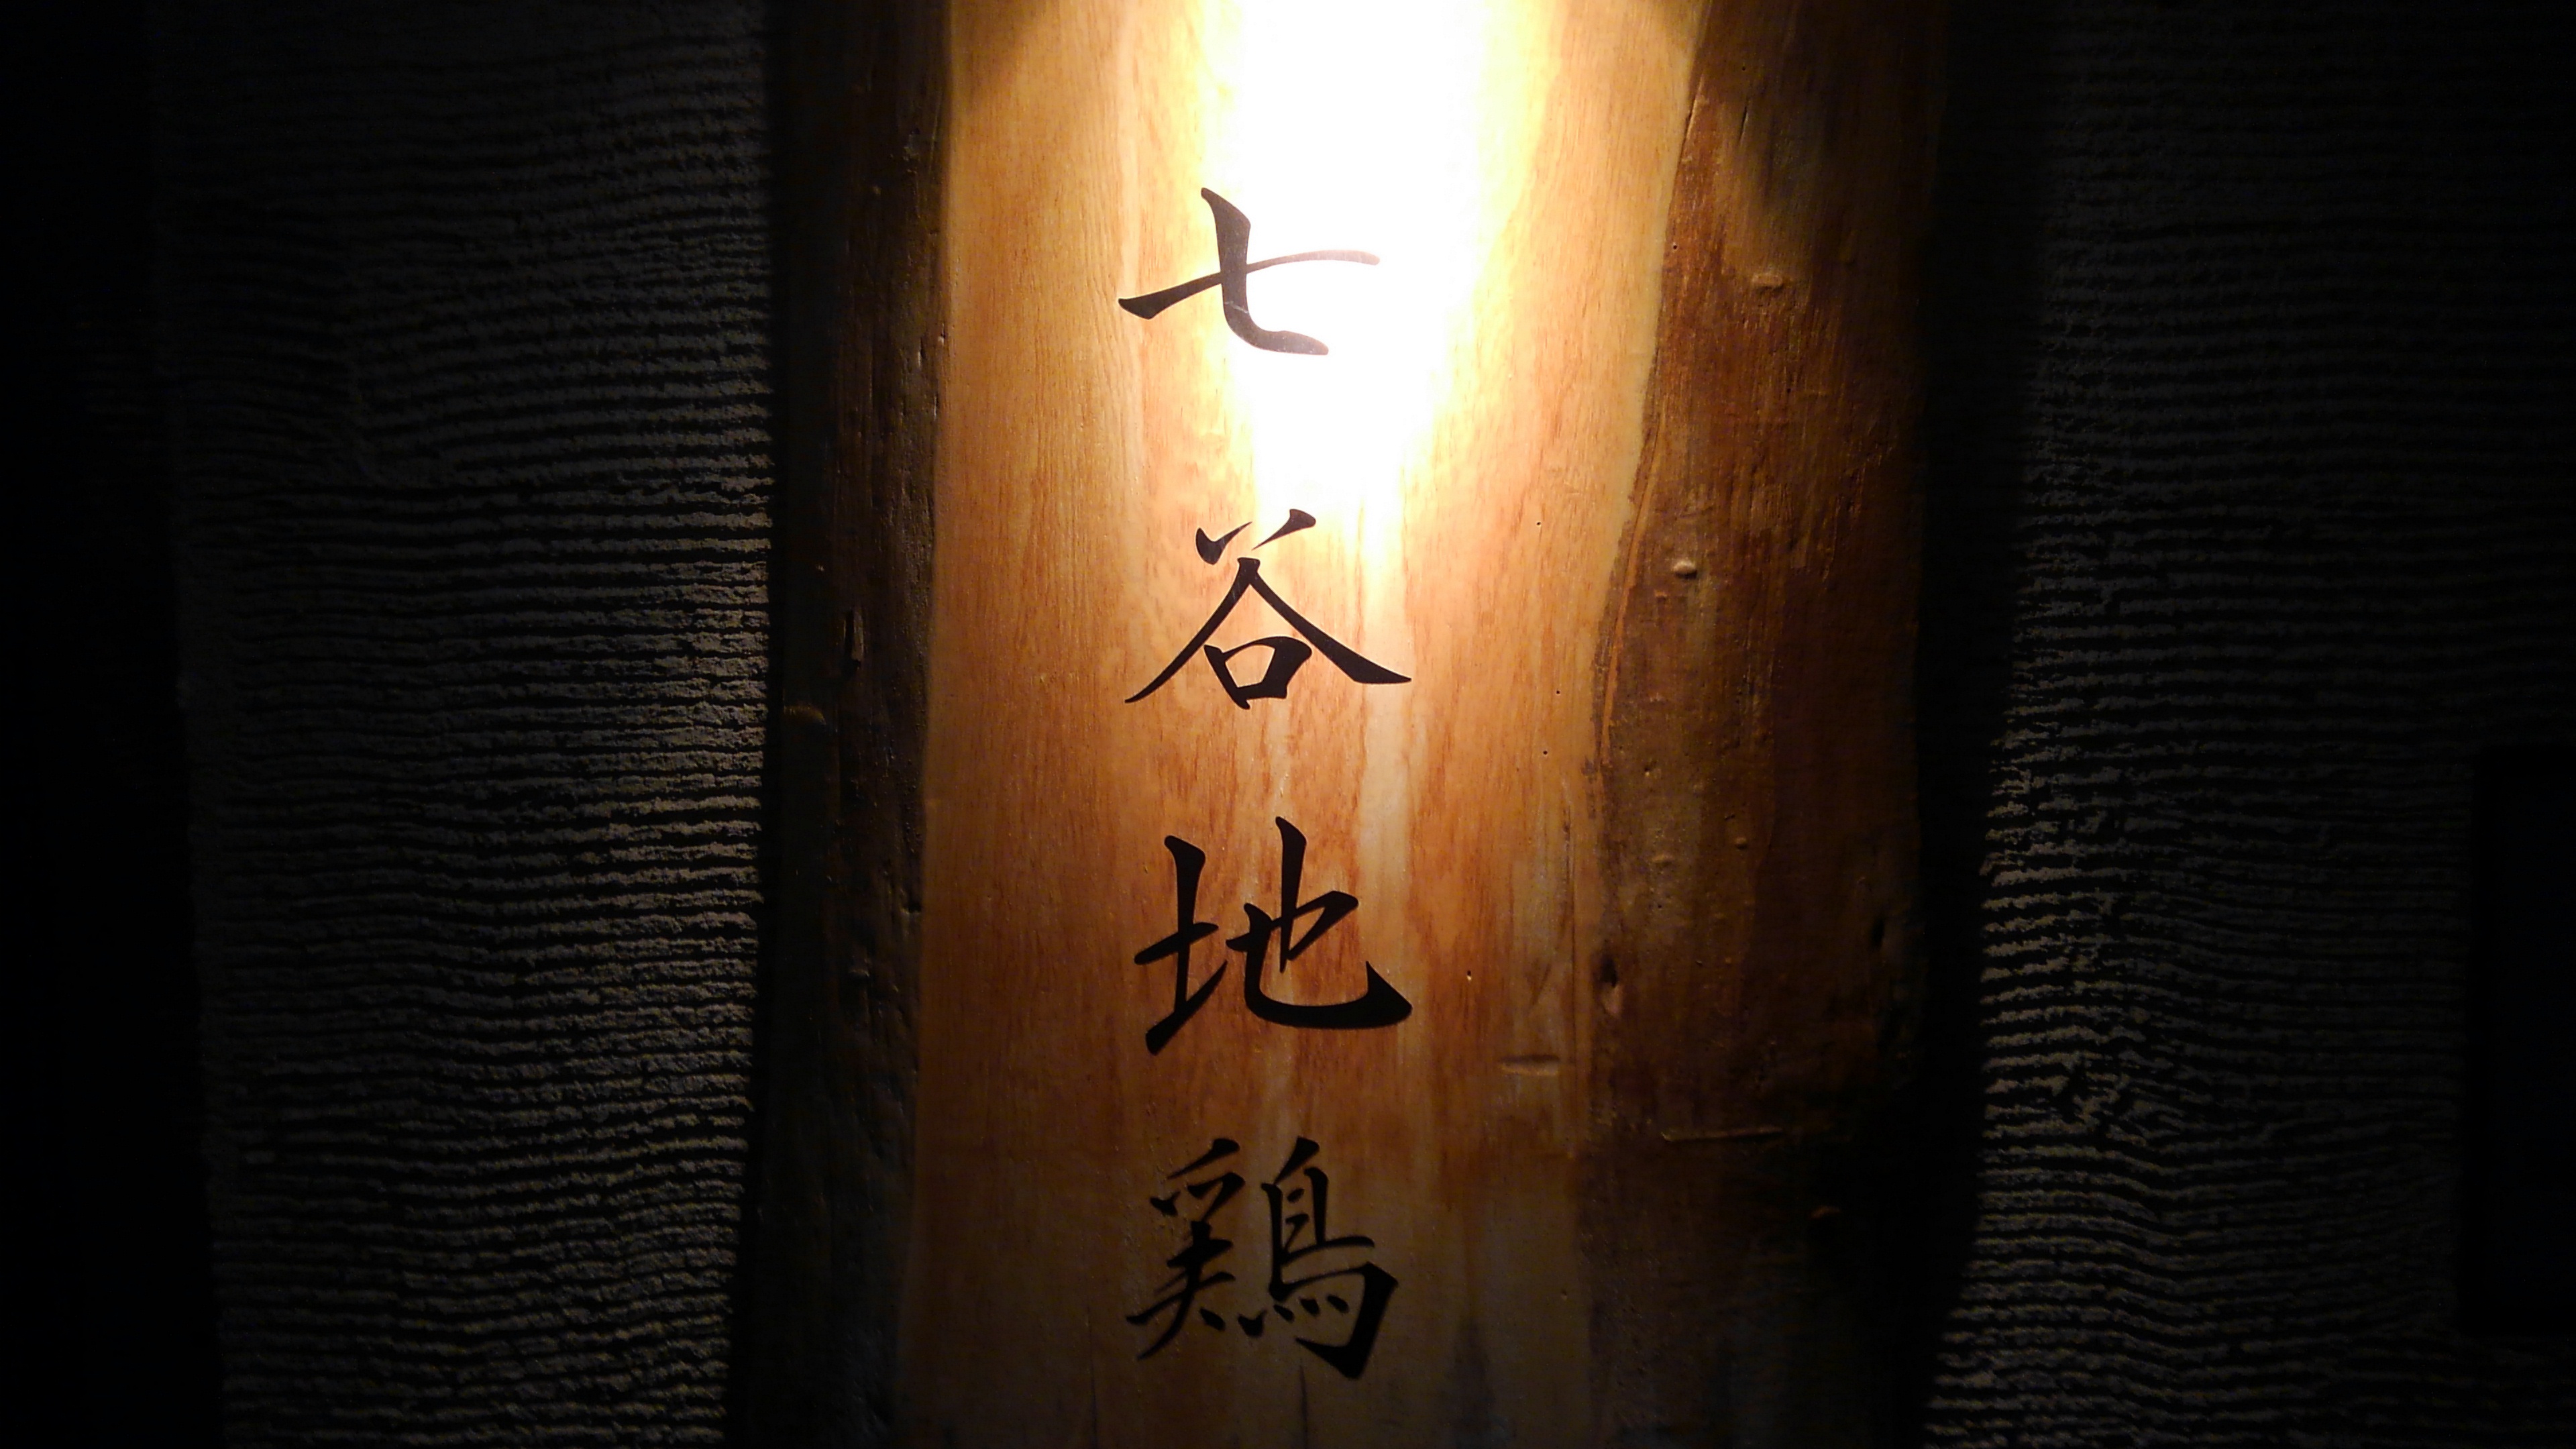 七谷地鶏